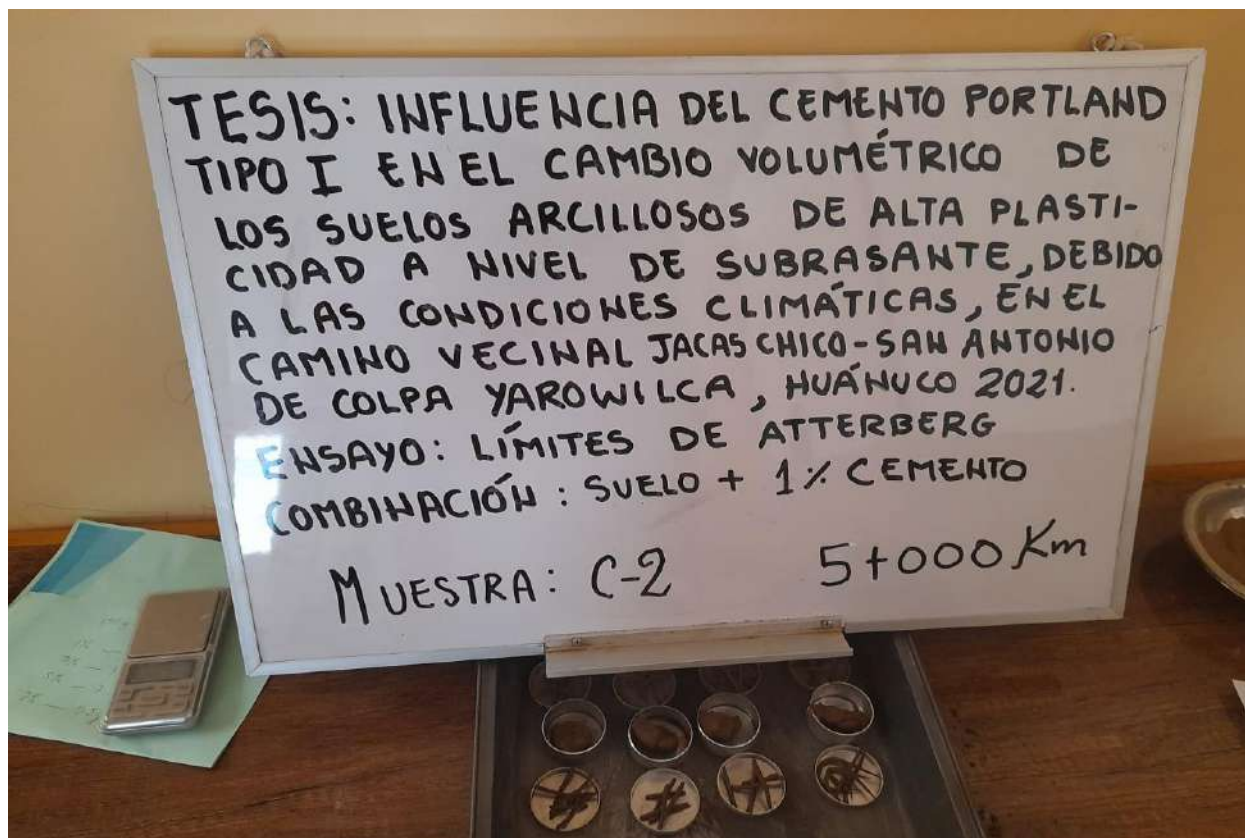 TESIS: INFLUENCIA DEL CEMENTO PORTLAND
TIPO I EN EL CAMBIO VOLUMÉTRICO DE
LOS SUELOS ARCILLOSOS DE ALTA PLASTI-
CIDAD A NIVEL DE SUBRASANTE, DEBIDO
A LAS CONDICIONES CLIMÁTICAS, EN EL
CAMINO VECINAL JACAS CHICO-SAN ANTONIO
DE COLPA YAROWILCA, HUÁNUCO 2021.
ENSAYO: LÍMITES DE ATTERBERG
COMBINACIÓN: SUELO + 1% CEMENTO
MUESTRA: C-2 5+000 Km